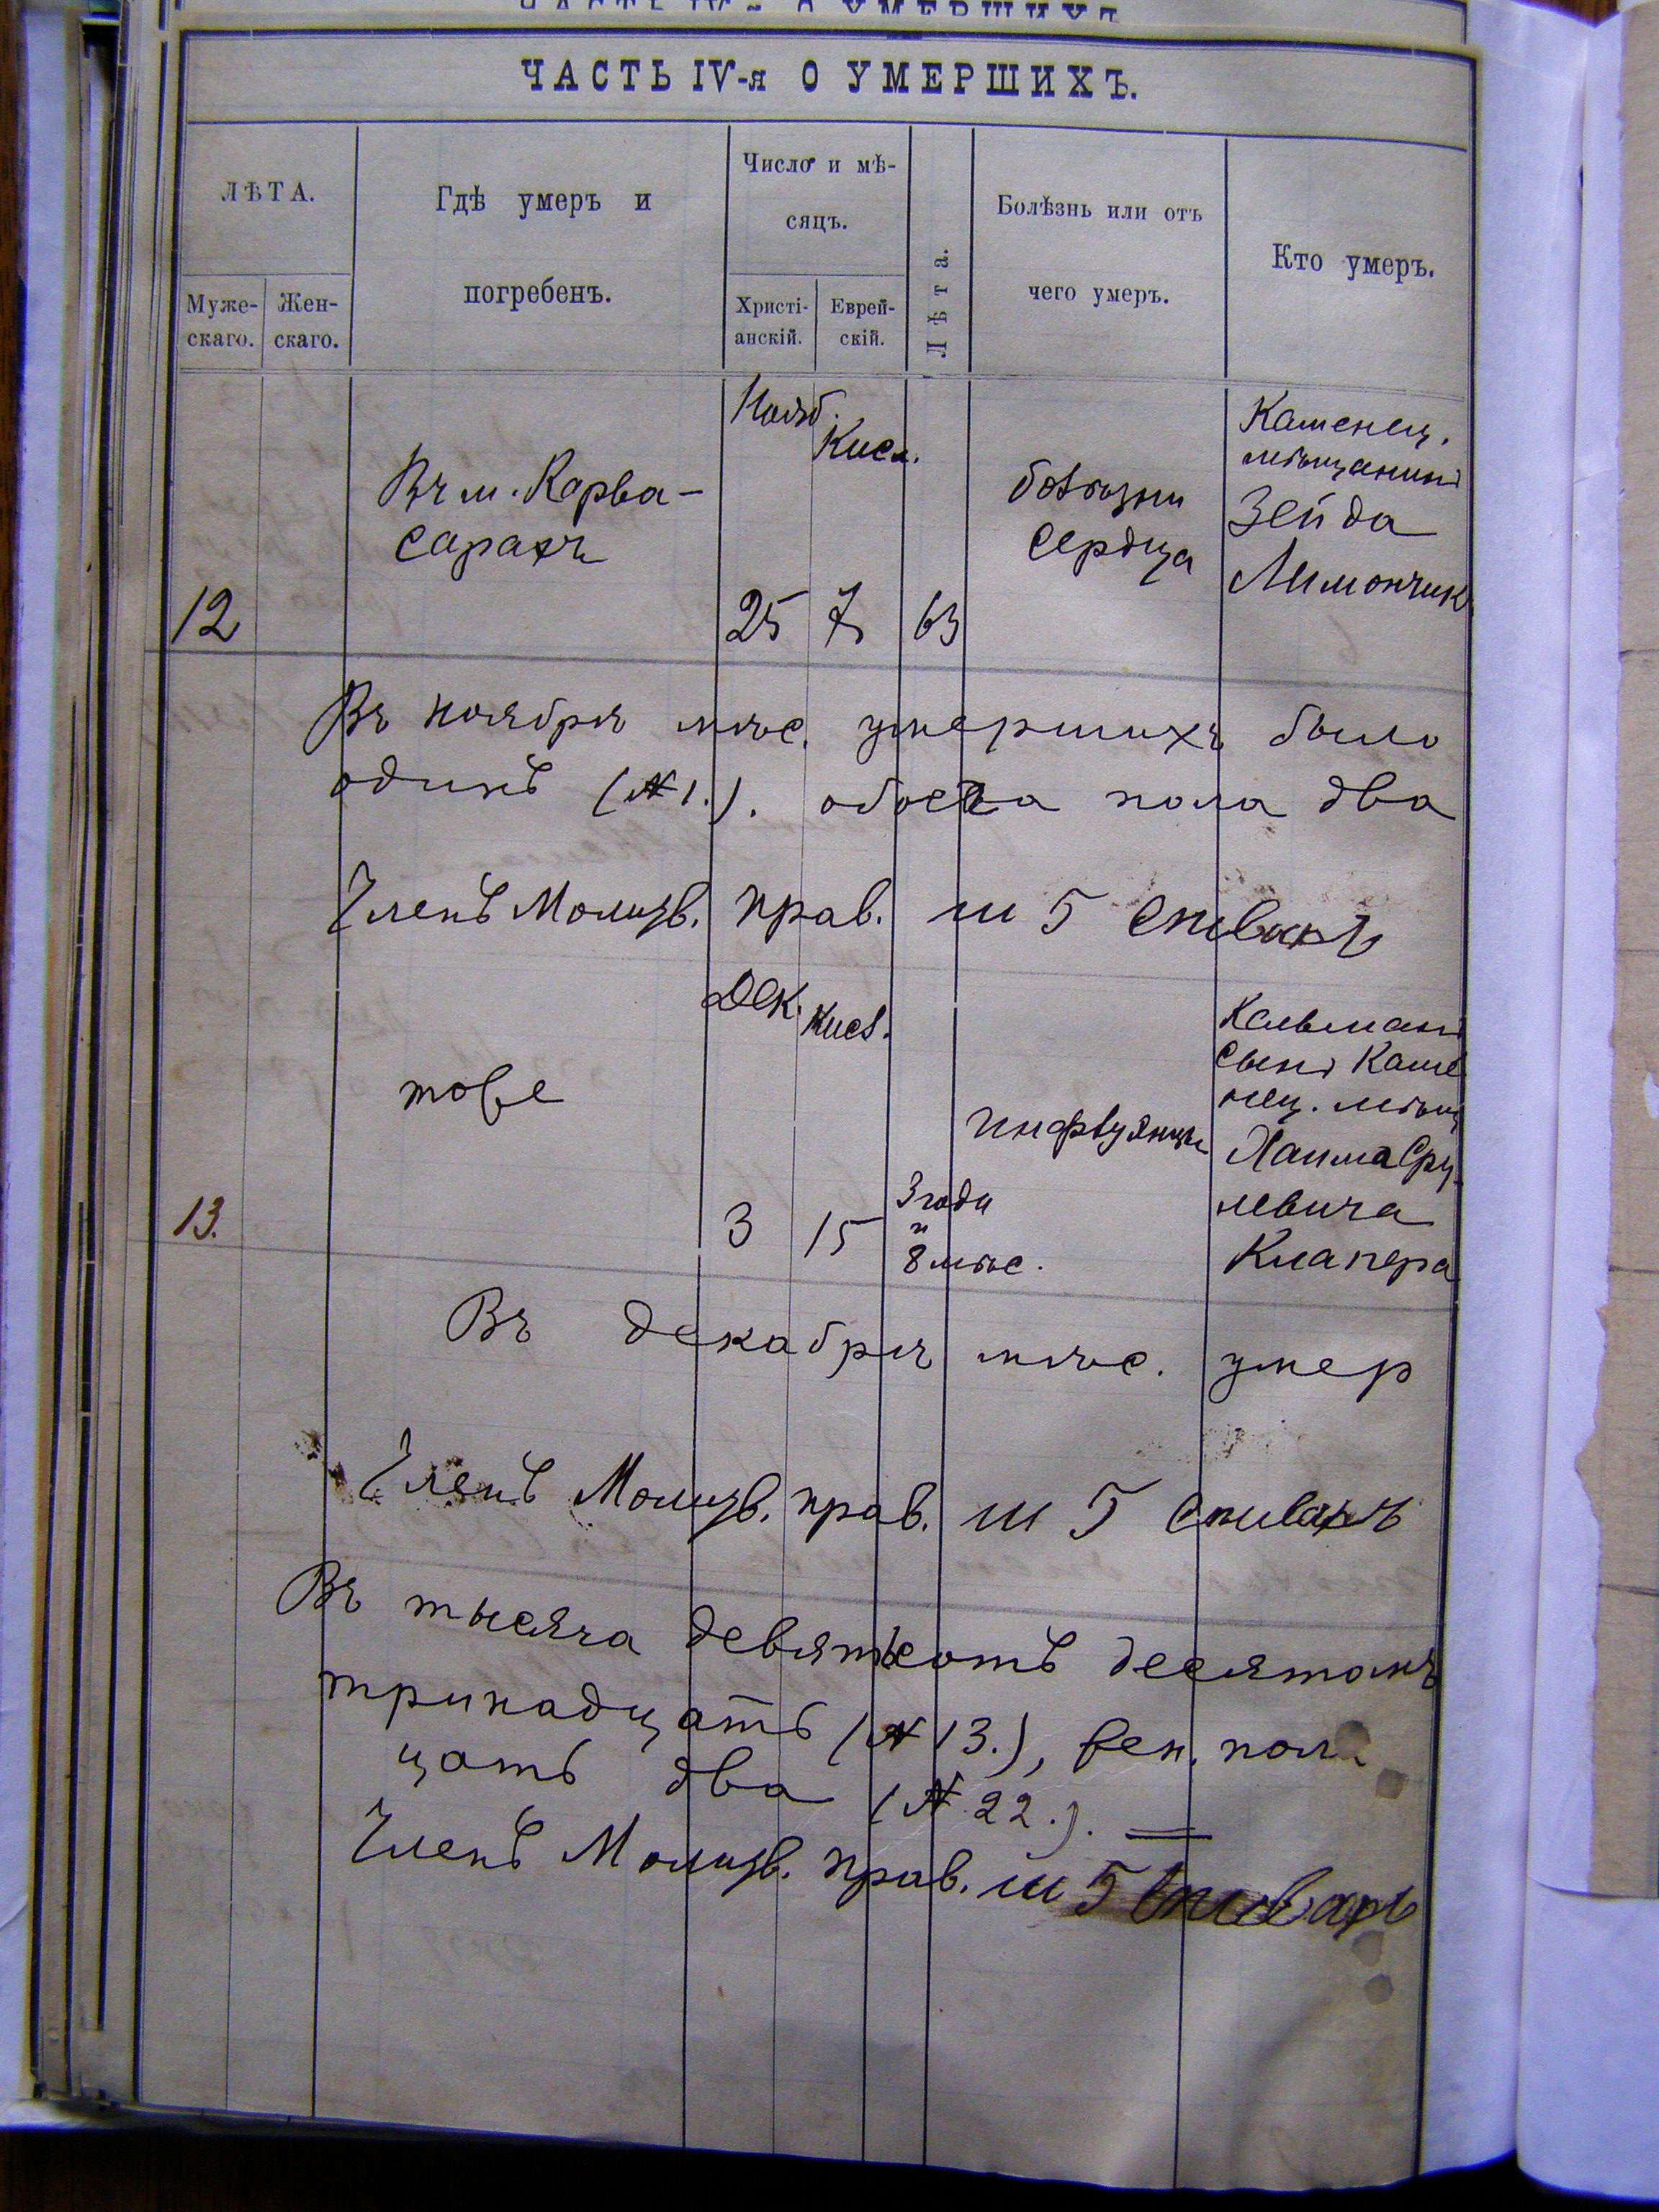 ЧАСТЬ IV-я О УМЕРШИХЪ.
ЛѢТА.
Муже-
скаго.
Жен-
скаго.
Гдѣ умеръ и
погребенъ.
Число и мѣ-
сяцъ.
Христі-
анскій.
Еврей-
скій.
Лѣта.
Болѣзнь или отъ
чего умеръ.
Кто умеръ.
12
Въ м. Карва-
сарахъ
Нояб.
25
Кисл.
7
63
болѣзни
сердца
Каменец.
мѣщанинъ
Зейда
Лимончик
Въ ноябрѣ мѣс. умершихъ было
одинъ (№ 1.). обоега пола два
Членъ Молитв. прав. Ш Г Спиваръ
13.
тоже
Дек.
3
Кисл.
15
3 года
и
8 мѣс.
Кальманъ
сынъ Каме
нец. мѣщ
Хаима Сру
левича
Клапера
Въ декабрѣ мѣс. умер
Членъ Молитв. прав. Ш Г Спиваръ
Въ тысяча девятьсотъ десятомъ
тринадцать (№ 13.), жен. пола
цать два (№ 22.).
Членъ Молитв. прав. Ш Г Спиваръ